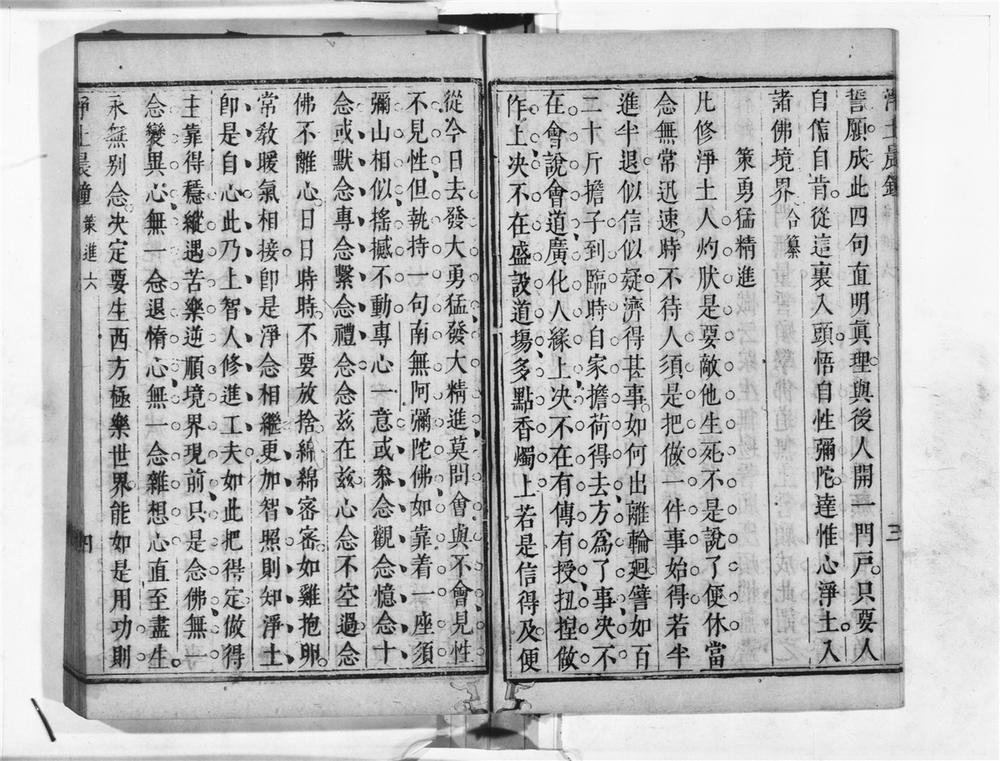 淨土晨鐘
三
誓願成此四句直明眞理與後人開一門戶只要人
自信自肯從這裏入頭悟自性彌陀達惟心淨土入
諸佛境界合纂
策勇猛精進
凡修淨土人灼肰是要敵他生死不是說了便休當
念無常迅速時不待人須是把做一件事始得若半
進半退似信似疑濟得甚事如何出離輪廻譬如百
二十斤擔子到臨時自家擔荷得去方爲了事决不
在會說會道廣化人緣上决不在有傳有授扭揑做
作上决不在盛設道塲多點香燭上若是信得及便
從今日去發大勇猛發大精進莫問會與不會見性
不見性但執持一句南無阿彌陀佛如靠着一座須
彌山相似搖撼不動專心一意或叅念觀念憶念十
念或默念專念繫念禮念念玆在玆心念不空過念
佛不離心日日時時不要放捨綿綿密密如雞抱卵
常敎暖氣相接卽是淨念相繼更加智照則知淨土
卽是自心此乃上智人修進工夫如此把得定做得
主靠得穩縱遇苦樂逆順境界現前只是念佛無一
念變異心無一念退惰心無一念雜想心直至盡生
永無别念决定要生西方極樂世界能如是用功則
淨土晨鐘 策進六
四